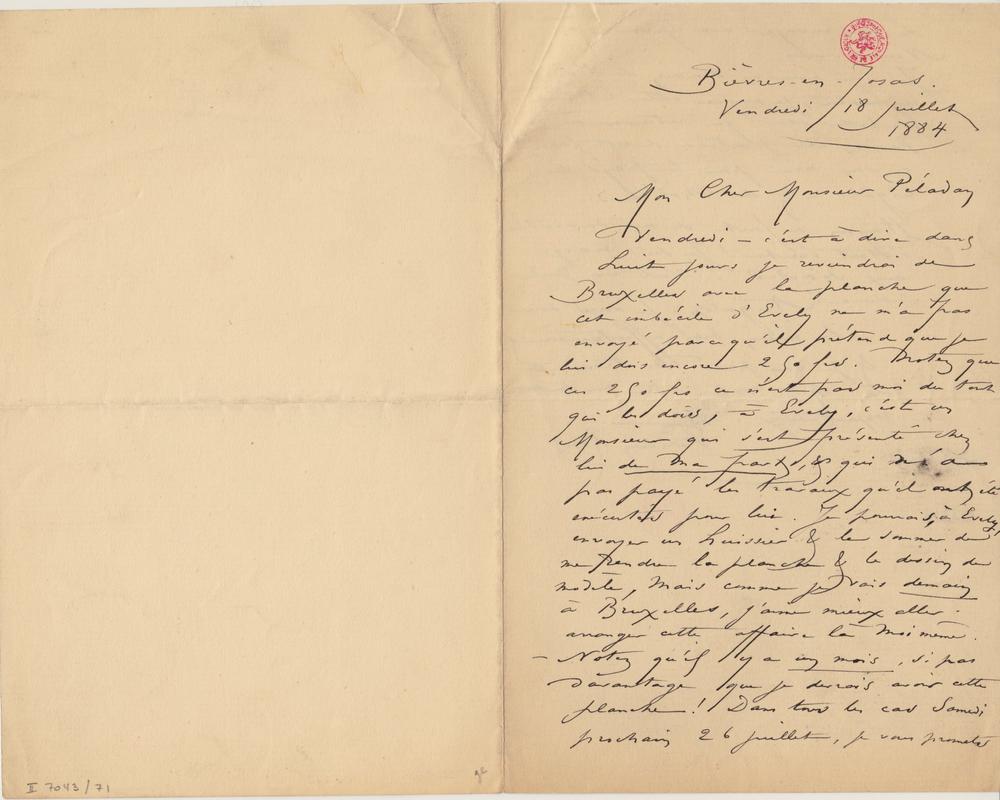 Bièvres-en-Josas.
Vendredi 18 juillet
1884
Mon Cher Monsieur Péladan
Vendredi – c'est à dire dans
huit jours je reviendrai de
Bruxelles avec la planche que
cet imbécile d'Evely ne m'a pas
envoyé parcequ'il prétend que je
lui dois encore 250 frs. Notez que
ces 250 frs ce n'est pas moi du tout
qui les dois, à Evely, c'est un
Monsieur qui s'est présenté chez
lui de ma part, & qui n'a
pas payé les travaux qu'il ont été
exécutés pour lui. Je pourrais, à Evely
envoyer un huissier & le sommer de
me rendre la planche & le dessin du
modèle, mais comme je vais demain
à Bruxelles, j'aime mieux aller
arranger cette affaire là moi même.
– Notez qu'il y a un mois, si pas
davantage que je devrais avoir cette
planche! Dans tous les cas Samedi
prochain 26 juillet, je vous promets
II 7043/71